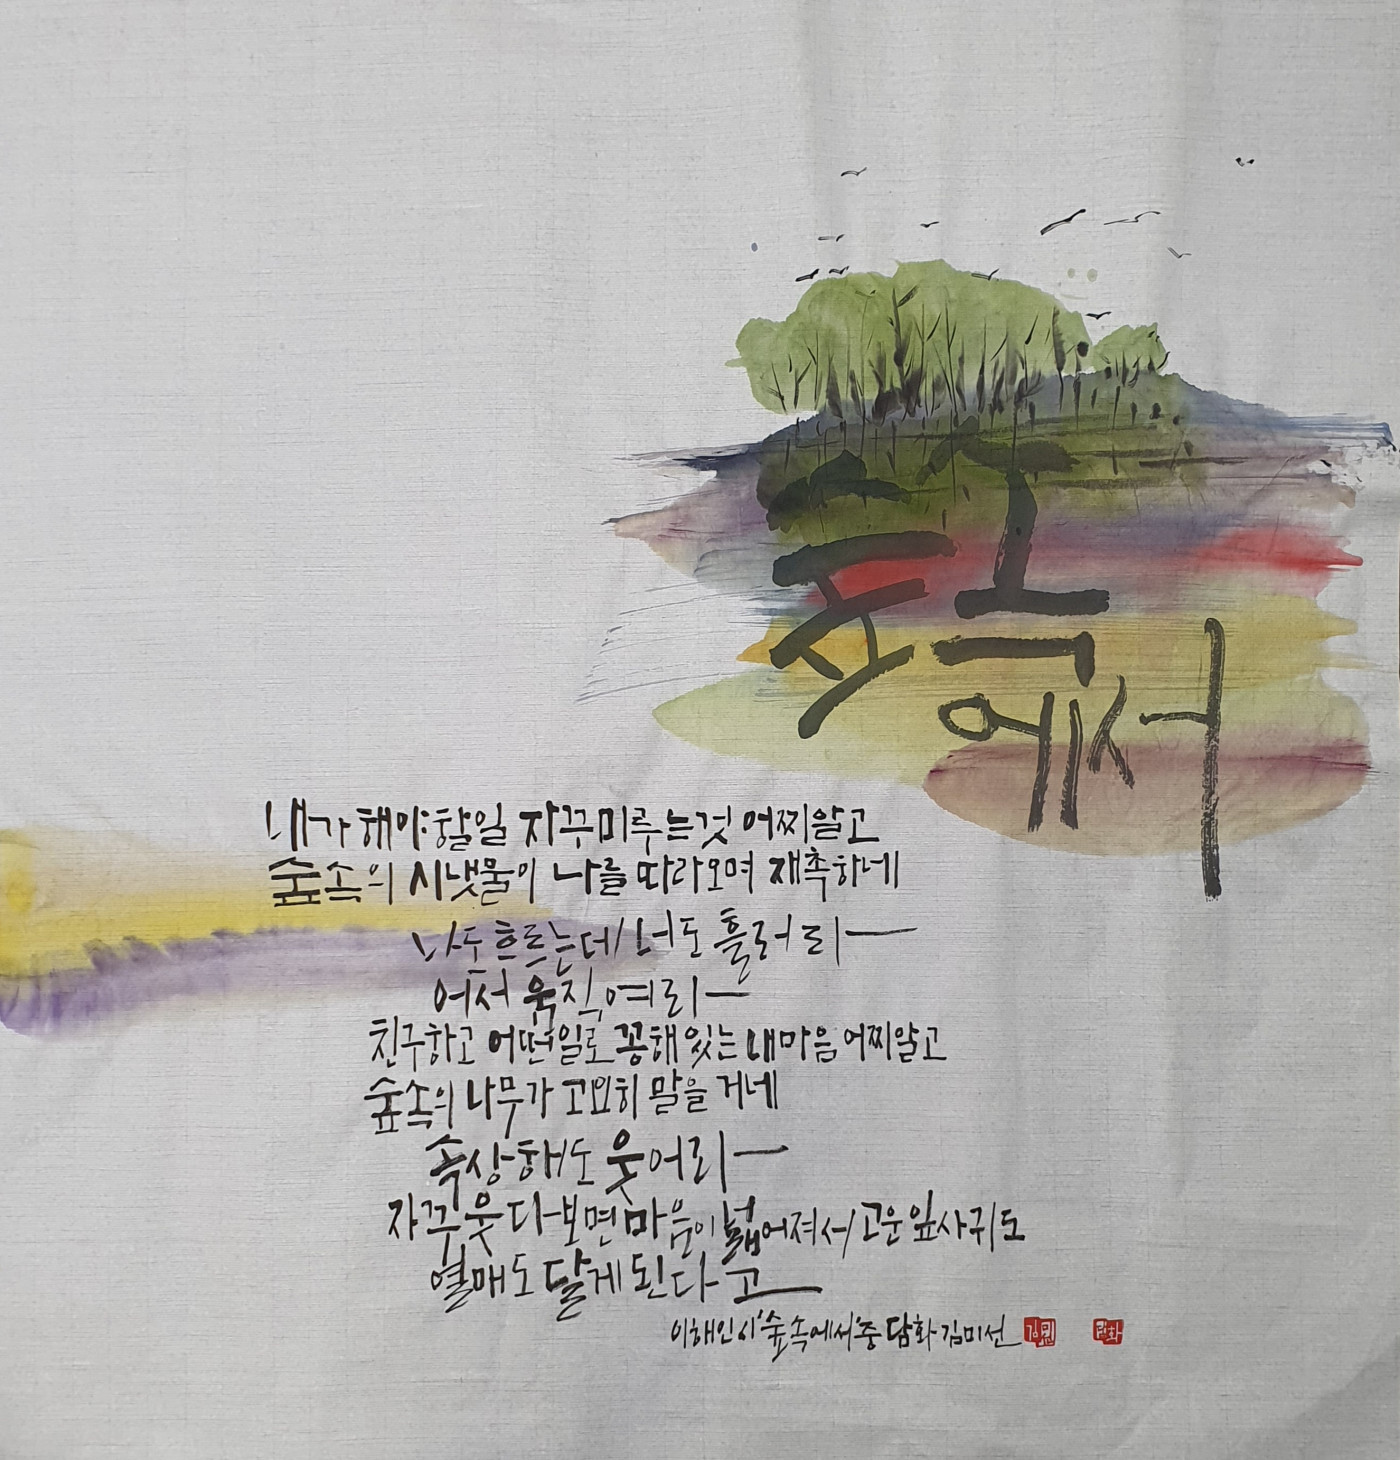 숲속
에서
내가 해야 할일 자꾸 미루는것 어찌알고
숲속의 시냇물이 나를 따라오며 재촉하네
나도 흐르는데/너도 흘러리—
어서 움직여리—
친구하고 어떤일로 꽁해있는 내마음 어찌알고
숲속의 나무가 고요히 말을 거네
속상해도 웃어리—
자꾸 웃다보면 마음이 넓어져서/고운 잎사귀도
열매도 달게된다고—
이해인시 '숲속에서' 중 담화 김미선